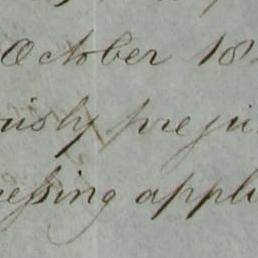 October 18
ously preju
ressing appli